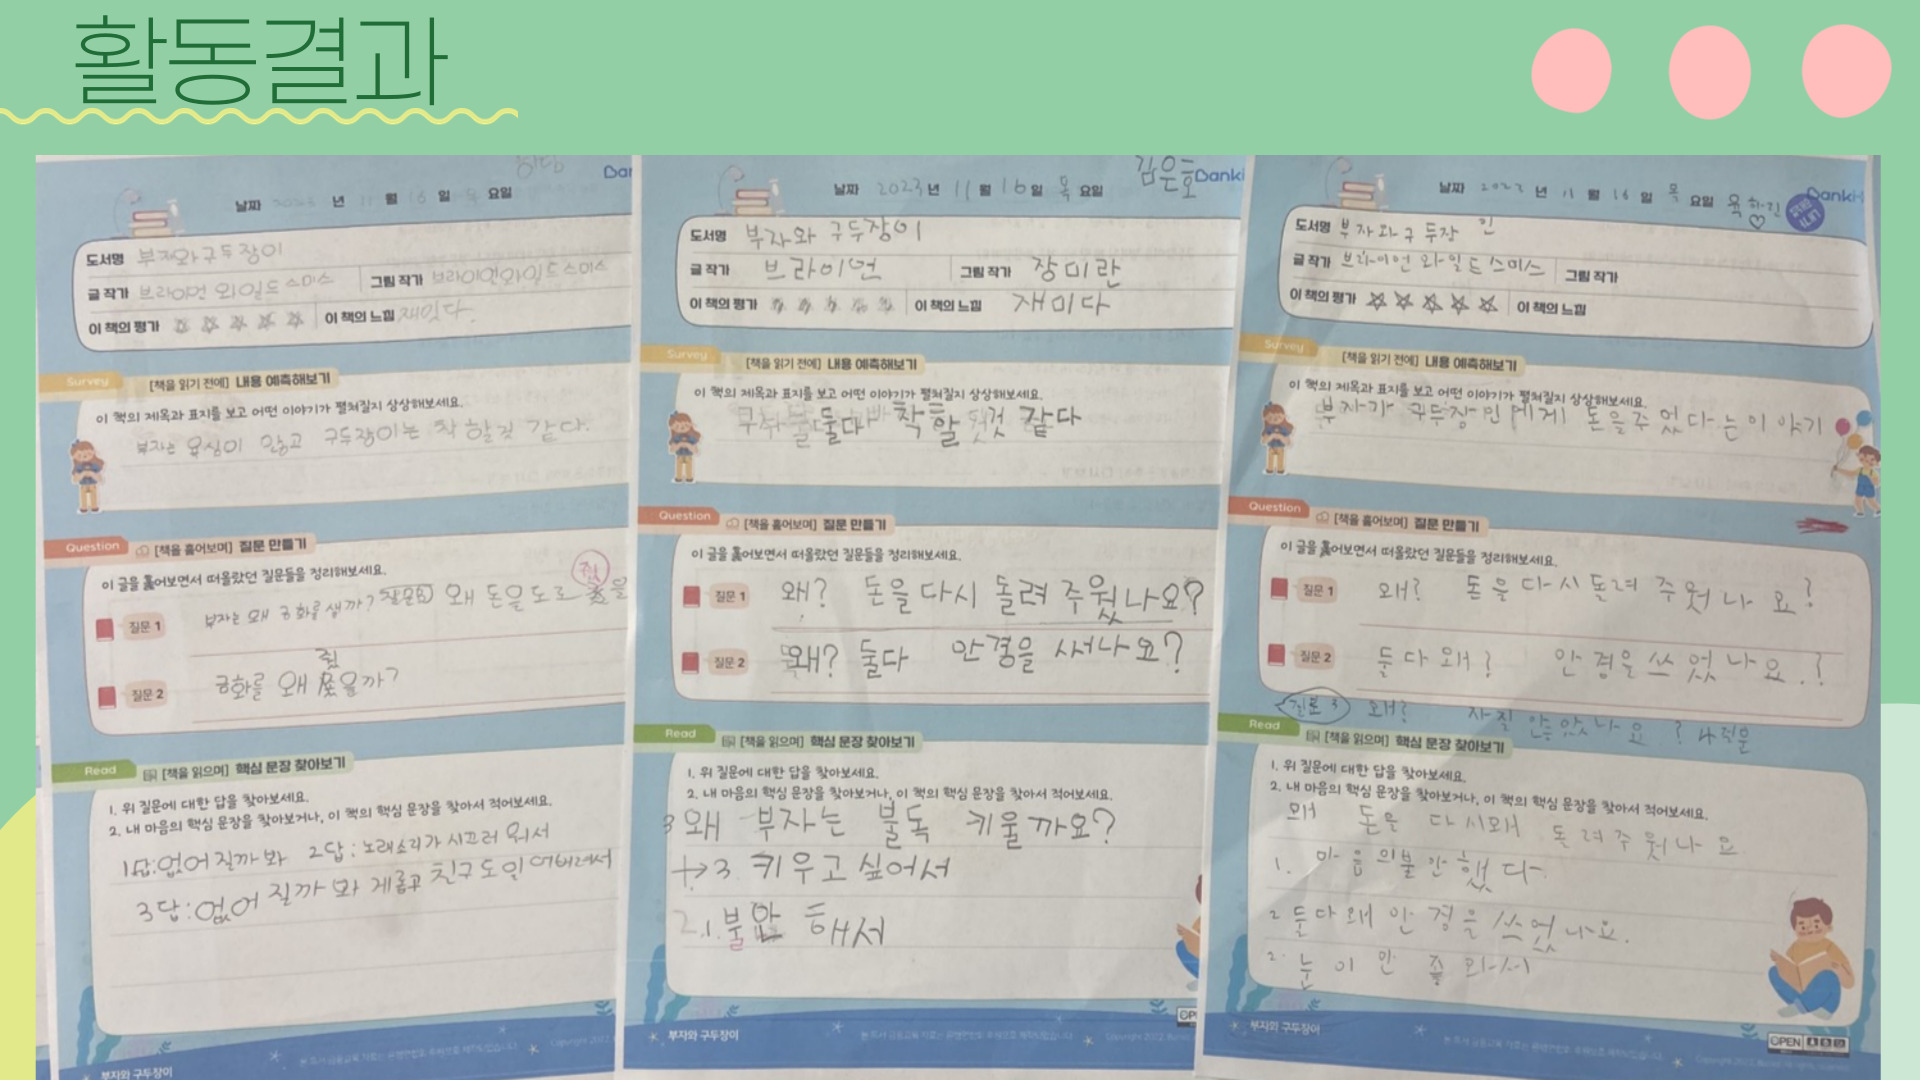 활동결과
하담
날짜 2023 년 11 월 16 일 목 요일
도서명 부자와 구두장이
글 작가 브라이언 와일드 스미스 그림 작가 브라이언와일드스미스
이 책의 평가 이 책의 느낌 재밌다.
Survey [책을 읽기 전에] 내용 예측해보기
이 책의 제목과 표지를 보고 어떤 이야기가 펼쳐질지 상상해보세요.
부자는 욕심이 많고 구두장이는 착할것 같다.
Question [책을 훑어보며] 질문 만들기
이 글을 훑어보면서 떠올랐던 질문들을 정리해보세요.
질문 1 부자는 왜 금화를 샐까? 질문3 왜 돈을 도로 을
질문 2 금화를 왜 줬을까?
Read [책을 읽으며] 핵심 문장 찾아보기
1. 위 질문에 대한 답을 찾아보세요.
2. 내 마음의 핵심 문장을 찾아보거나, 이 책의 핵심 문장을 찾아서 적어보세요.
1답:없어질까봐 2답:노래소리가 시끄러 워서
3답:없어질까봐 괴롭고 친구도 잃어버려서
부자와 구두장이
날짜 2023 년 11 월 16 일 목 요일 김은호 Danki
도서명 부자와 구두장이
글 작가 브라이언 그림 작가 장미란
이 책의 평가 이 책의 느낌 재미다
Survey [책을 읽기 전에] 내용 예측해보기
이 책의 제목과 표지를 보고 어떤 이야기가 펼쳐질지 상상해보세요.
둘다 착할 것 같다
Question [책을 훑어보며] 질문 만들기
이 글을 훑어보면서 떠올랐던 질문들을 정리해보세요.
질문 1 왜? 돈을 다시 돌려 주웠나요?
질문 2 왜? 둘다 안경을 써나요?
Read [책을 읽으며] 핵심 문장 찾아보기
1. 위 질문에 대한 답을 찾아보세요.
2. 내 마음의 핵심 문장을 찾아보거나, 이 책의 핵심 문장을 찾아서 적어보세요.
3 왜 부자는 불독 키울까요?
→3. 키우고 싶어서
2.1.불안 해서
부자와 구두장이
날짜 2023 년 11 월 16 일 목 요일 육하진 Danki
도서명 부자와 구두장인
글 작가 브라이언 와일드스미스 그림 작가
이 책의 평가 이 책의 느낌
Survey [책을 읽기 전에] 내용 예측해보기
이 책의 제목과 표지를 보고 어떤 이야기가 펼쳐질지 상상해보세요.
부자가 구두장인에게 돈을주었다는이야기
Question [책을 훑어보며] 질문 만들기
이 글을 훑어보면서 떠올랐던 질문들을 정리해보세요.
질문 1 왜? 돈을 다시돌려 주웠나요?
질문 2 둘다 왜? 안경을 쓰었나요.?
왜?
Read [책을 읽으며] 핵심 문장 찾아보기
1. 위 질문에 대한 답을 찾아보세요.
2. 내 마음의 핵심 문장을 찾아보거나, 이 책의 핵심 문장을 찾아서 적어보세요.
왜 돈을 다시왜 돌려주웠나요
1. 마음의불안했다.
2 둘다왜 안경을 쓰었나요.
2. 눈이 안 좋와서
부자와 구두장이
OPEN